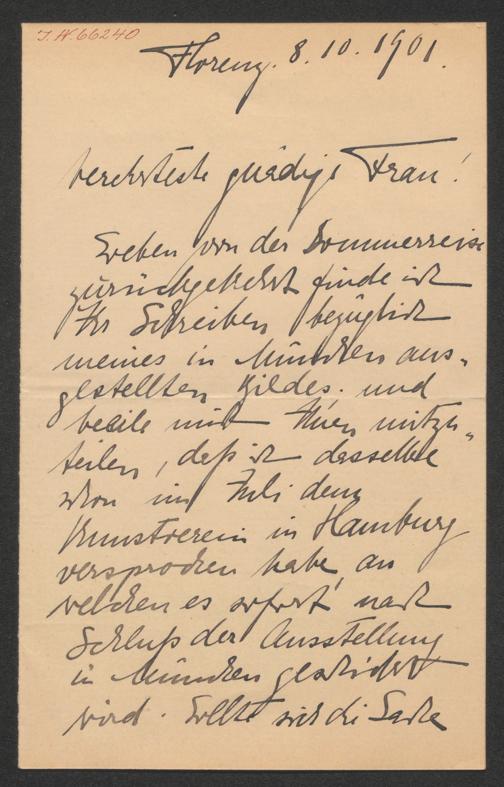 J.N. 66240
Florenz. 8. 10. 1901.
Verehrteste gnädige Frau!
Soeben von der Sommerreise
zurückgekehrt finde ich
Ihr Schreiben bezüglich
meines in München aus-
gestellten Bildes. und
beeile mich Ihnen mitzu-
teilen, daß ich dasselbe
schon im Juli dem
Kunstverein in Hamburg
versprochen habe, an
welchen es sofort nach
Schluß der Ausstellung
in München geschickt
wird. Sollte sich die Sache